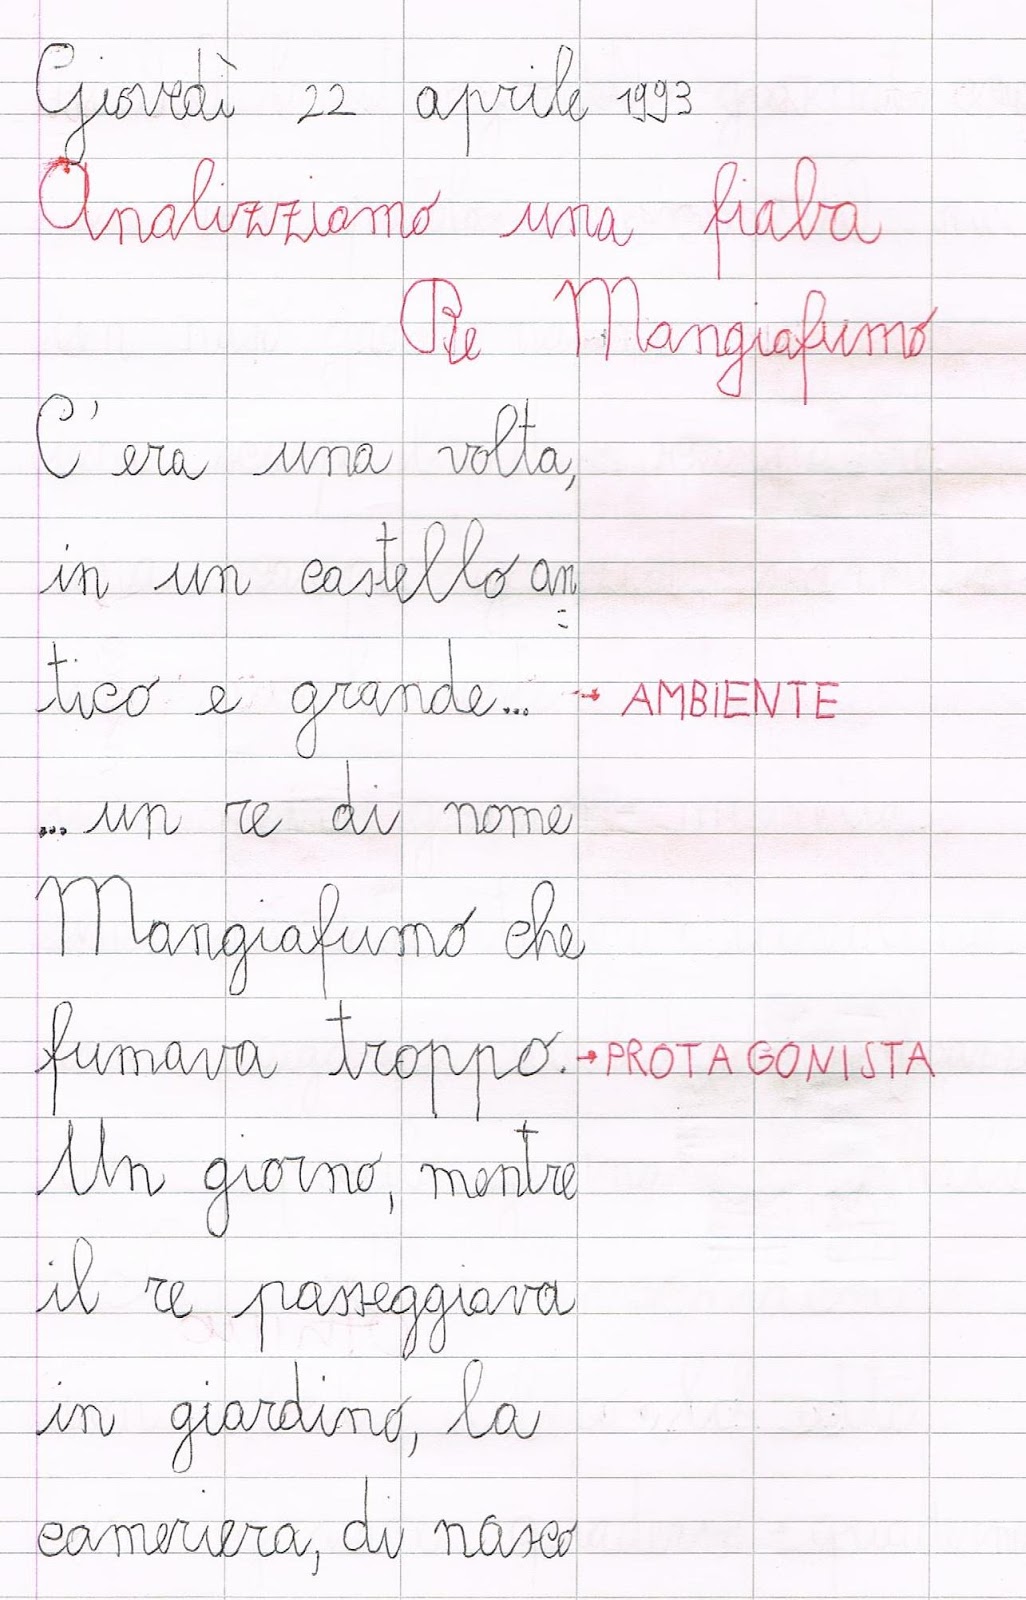 Giovedì 22 aprile 1993
Analizziamo una fiaba
Re Mangiafumo
C'era una volta,
in un castello an=
tico e grande... → AMBIENTE
...un re di nome
Mangiafumo che
fumava troppo. → PROTAGONISTA
Un giorno, mentre
il re passeggiava
in giardino, la
cameriera, di nasco